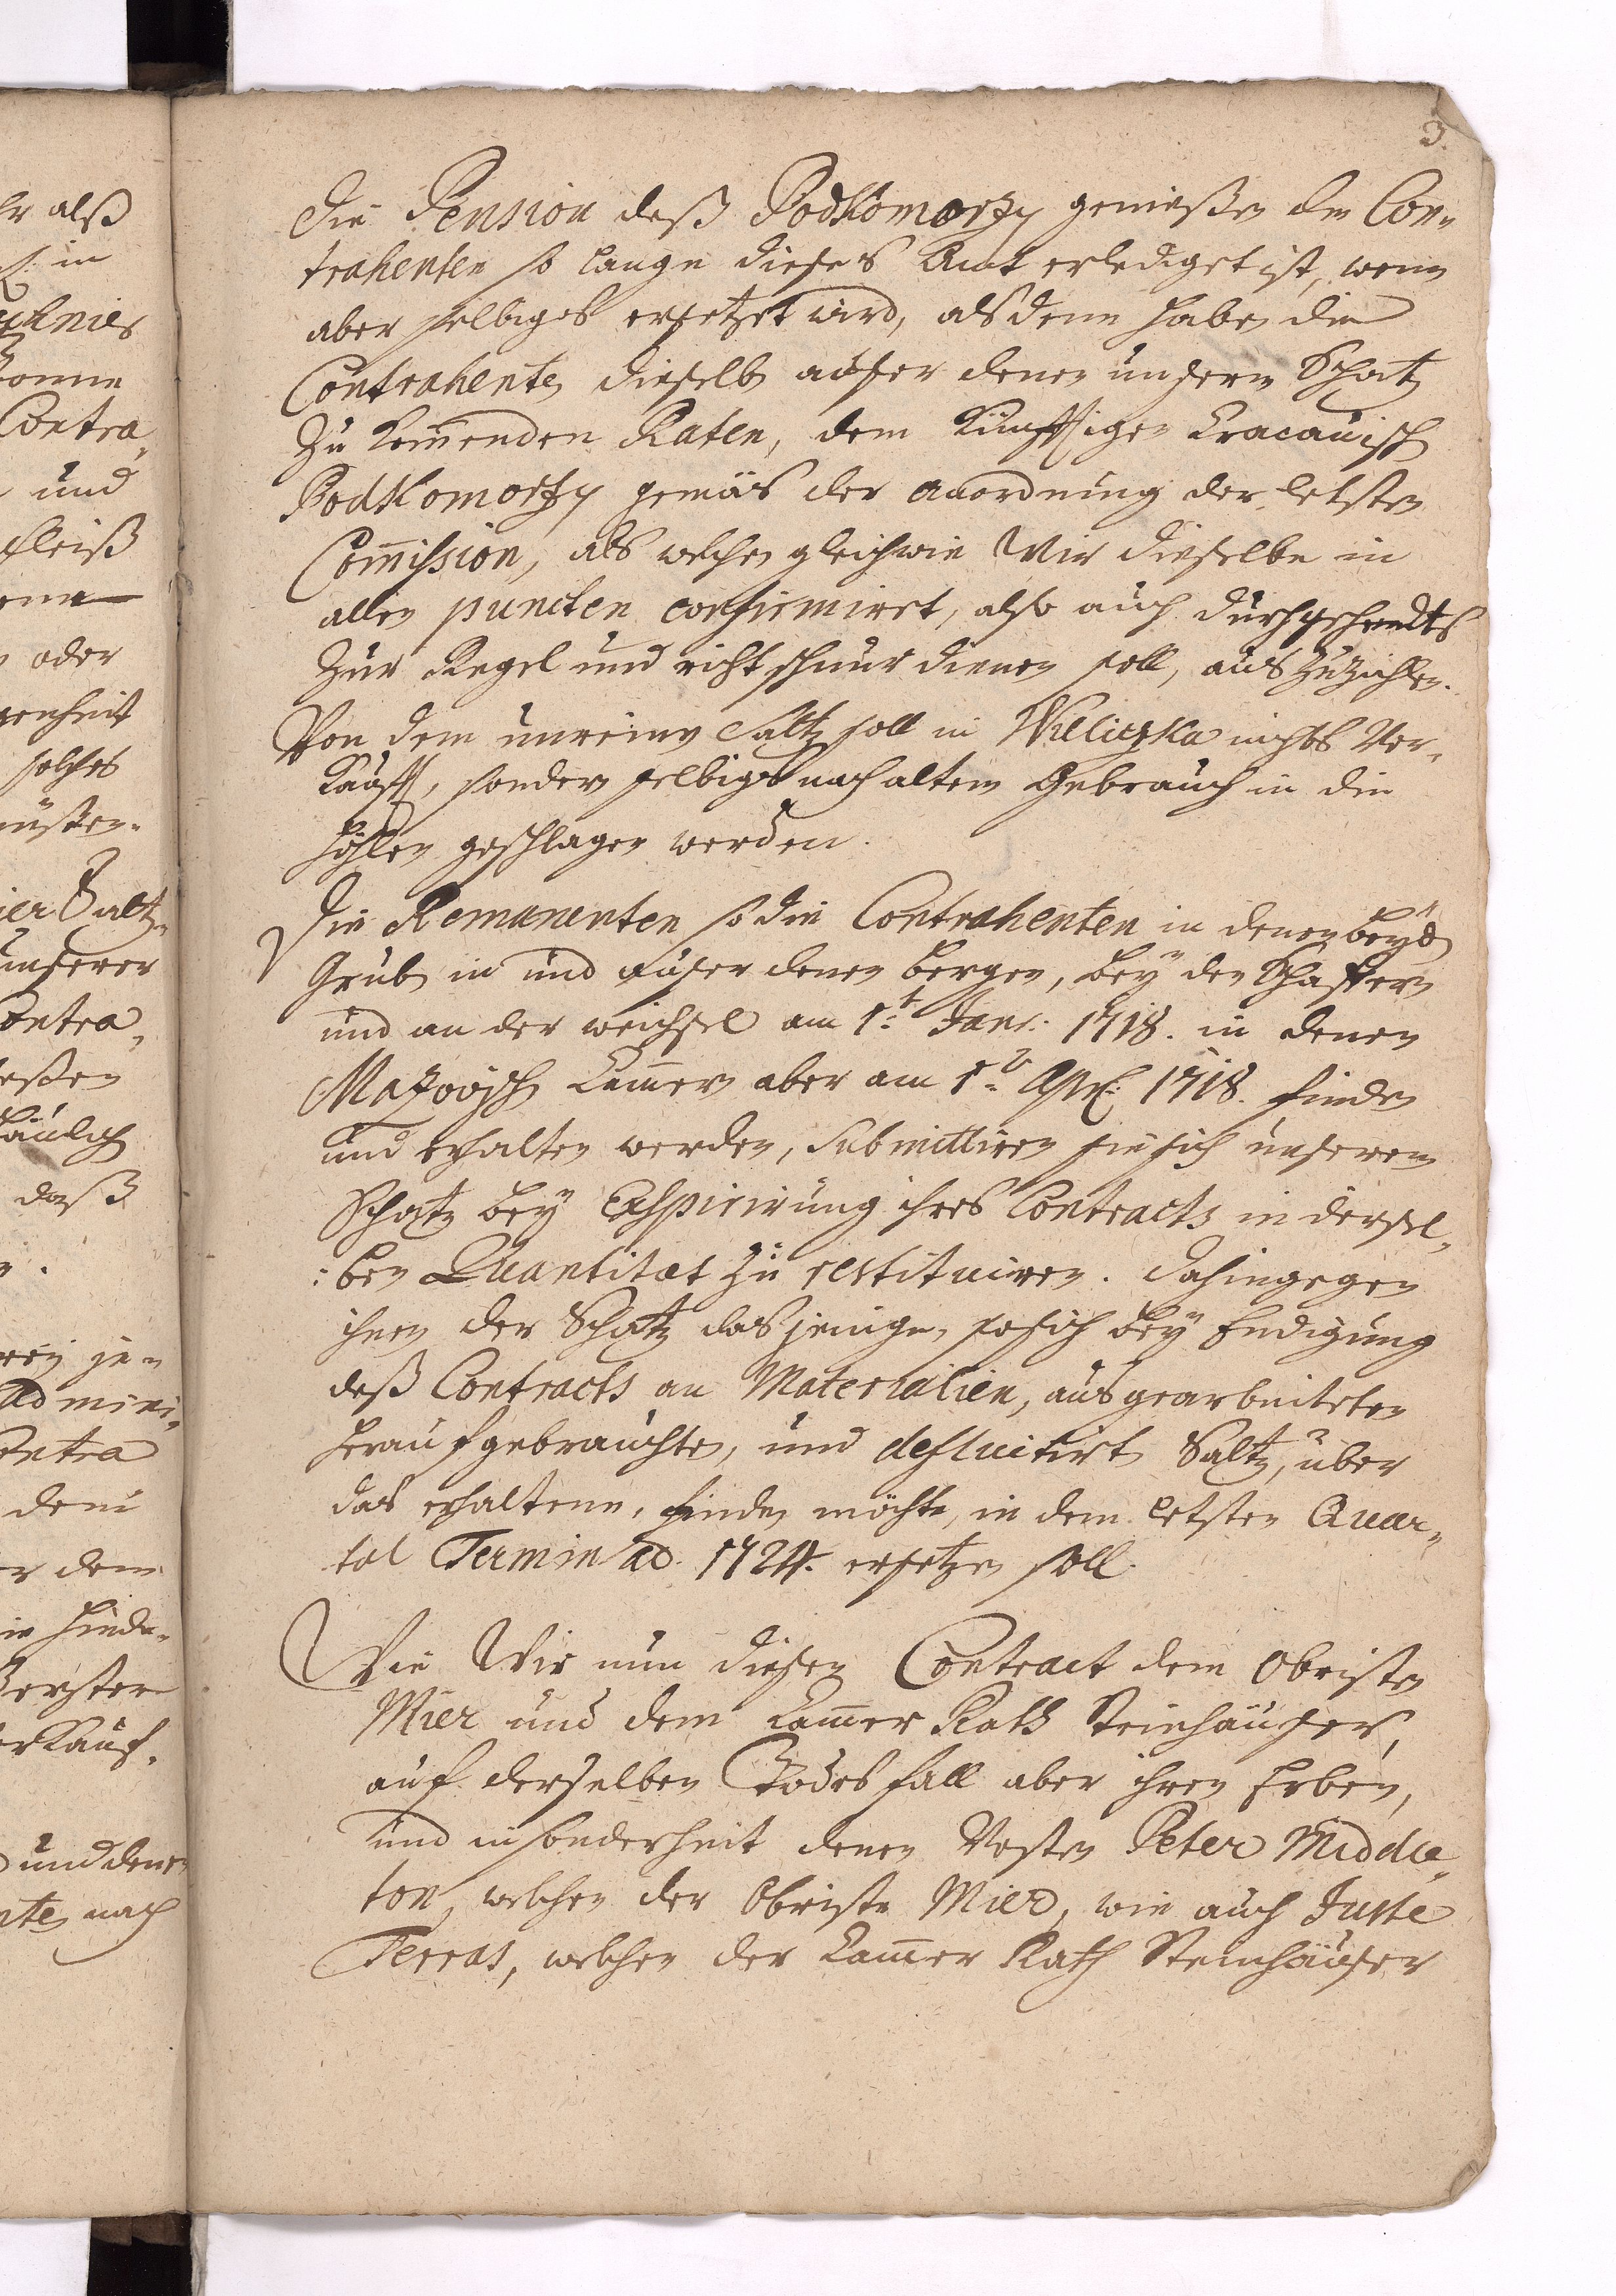 3.
Die Pension deß Podkomorzy genießen die Con-
trahenten so lange dieses Amt erlediget ist, wenn
aber selbiges ersetzet wird, alsdenn haben die
Contrahenten dieselbe außer denen unserm Schatz
zu kommenden Raten, dem künfftigen Cracauisch
Podkomorzy gemäs der anordnung der letsten
Commission, als welche gleichwie Wir dieselbe in
allen puncten confirmiret, also auch durchgehendts
zur Regel und richtschnur dienen soll, auszuzahlen.
Von dem unreinen Saltz soll in Williczka nichts Ver-
kaufft, sondern selbiges nach altem Gebrauch in die
Höhlen geschlagen werden.
Die Remanenten so die Contrahenten in denen beyden
Gruben in und außer denen Bergen, bey den Schaffern
und an der weichsel am 1t. Jan: 1718. in denen
Mazovisch Cammern aber am 1t. Apl: 1718. finden
und erhalten werden, submittiren sie sich unserem
Schatz bey Exspirirung ihres Contracts in dersel-
:ben Quantitæt zu restituiren. Dahingegen
ihnen der Schatz dasjenige, so sich bey Endigung
deß Contracts an Materialien, ausgearbeiteten
heraufgebrauchten, und defluitirt Saltz, über
das erhaltene, finden möchte, in dem letsten Quar-
tal Termin ad. 1724. ersetzen soll.
Wie Wir nun diesen Contract dem Obristen
Mier und dem Cammer Rath Steinhäußer,
auf derselben Todesfall aber ihren Erben,
und insonderheit denen Vesten Peter Middle-
ton, welchen der Obriste Mier, wie auch Juste
Terras, welchen der Cammer Rath Steinhäußer
r alß
in
Contra-
und
fleiß
oder
solches
Saltz-
unserer
Contra-
daß
je-
Admini-
Contra
dem
dem
verkauf-
und denen
nach